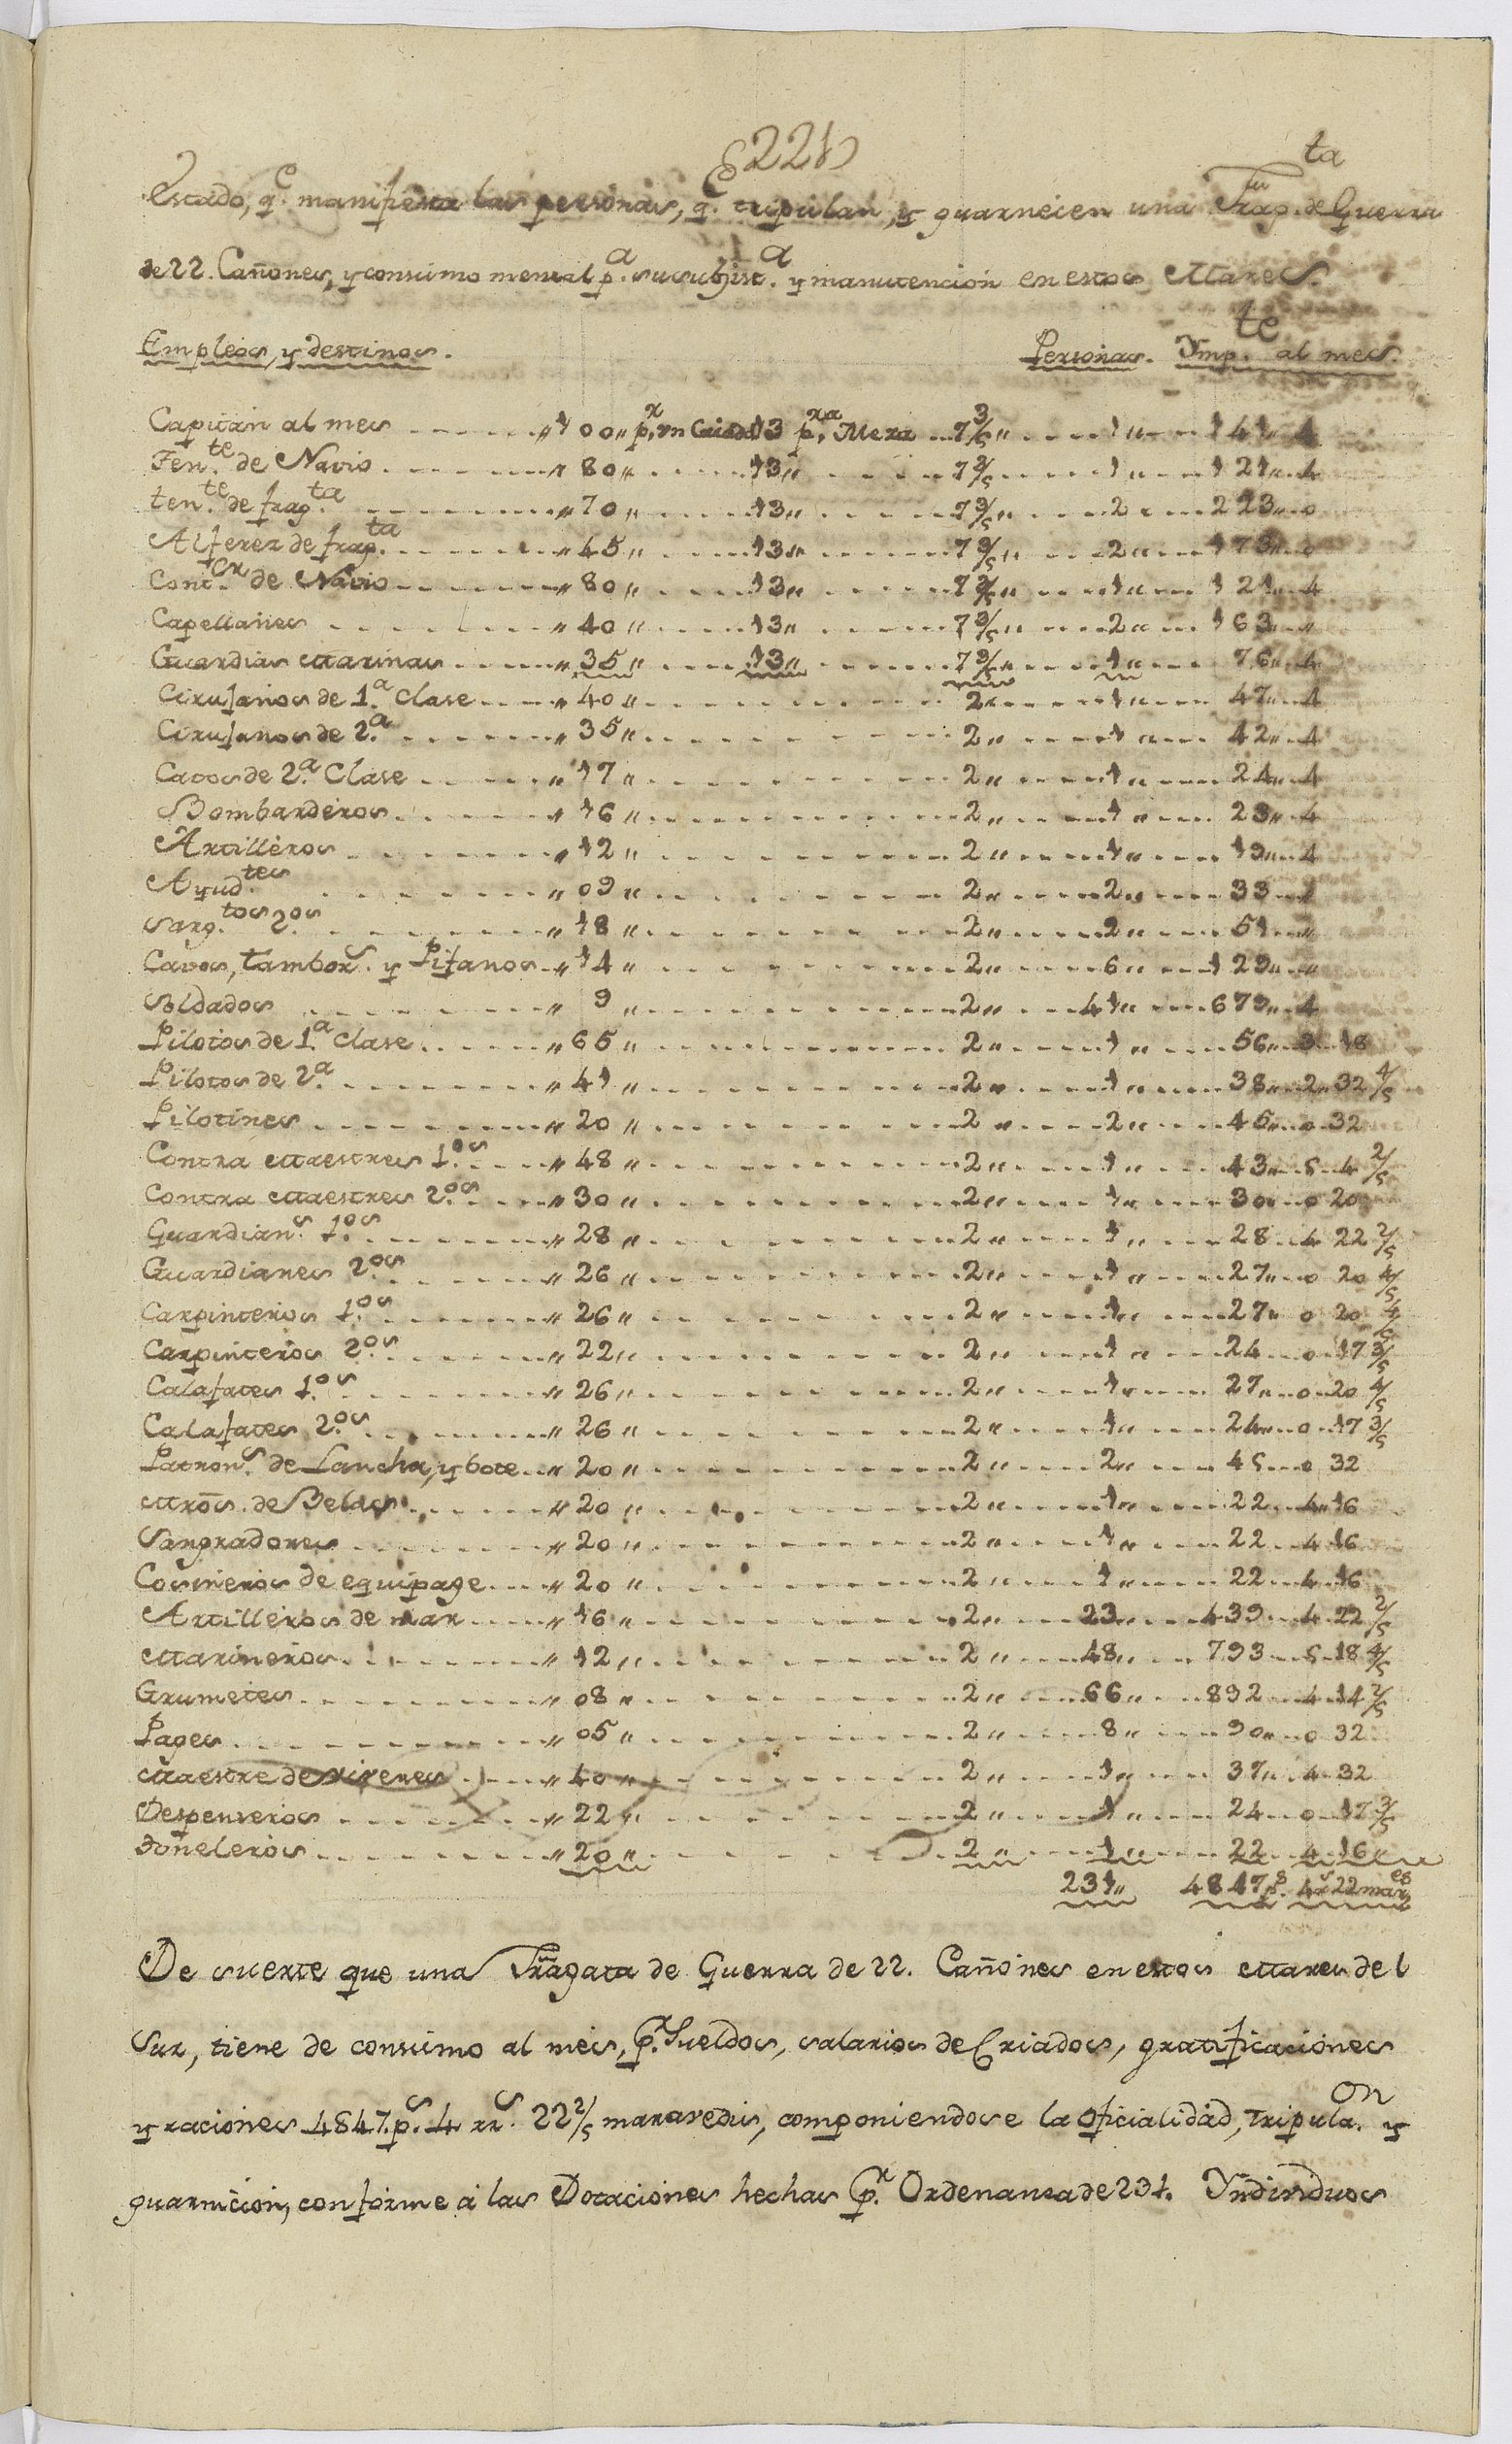 (221)
Estado, q.e manifiesta las personas, q.e tripulan, y guarnecen una Frag.ta de Guerra
de 22. Cañones, y consumo mensal p.a su subsist.a y manutencion en estos Mares.
Empleos, y destinos. Personas. Ymp.te al mes.
Capitan al mes " 100 " p.r vn Criado 13 p.ra Mesa 7 3/5 " 1 " 141 " 4
Ten.te de Navio " 80 " 13 " 7 3/5 1 " 121 " 4
ten.te de frag.ta " 70 " 13 " 7 3/5 " 2 " 223 " 0
Alferez de frag.ta " 45 " 13 " 7 3/5 " 2 " 173 " 0
Cont.or de Navio " 80 " 13 " 7 3/5 " 1 " 121 " 4
Capellanes " 40 " 13 " 7 3/5 " 2 " 163 " "
Guardias Marinas " 35 " 13 " 7 3/5 " 1 " 76 " 4
Cirujanos de 1.a Clase " 40 " 2 " 1 " 47 " 4
Cirujanos de 2.a " 35 " 2 " 1 " 42 " 4
Cavos de 2.a Clase " 17 " 2 " 1 " 24 " 4
Bombarderos " 16 " 2 " 1 " 23 " 4
Artilleros " 12 " 2 " 1 " 19 " 4
Ayud.tes " 09 " 2 " 2 " 33
Sarg.tos 2.os " 18 " 2 " 2 " 51 "
Cavos, tambor.s y Pifanos " 14 " 2 " 6 " 129 " "
Soldados " 9 " 2 " 41 " 679 " 4
Pilotos de 1.a Clase " 65 " 2 " 1 " 56 " 3 18
Pilotos de 2.a " 41 " 2 " 1 " 38 " 2 " 32 4/5
Pilotines " 20 " 2 " 2 " 45 " 0 32
Contra Maestres 1.os " 48 " 2 " 1 " 43 " 5 4 2/5
Contra Maestres 2.os " 30 " 2 " 1 " 30 " 0 20
Guardian.s 1.os " 28 " 2 " 1 " 28 4 22 2/5
Guardianes 2.os " 26 " 2 " 1 " 27 " 0 20 4/5
Carpinteros 1.os " 26 " 2 " 1 " 27 " 0 20 4/5
Carpinteros 2.os " 22 " 2 " 1 " 24 0 17 3/5
Calafates 1.os " 26 " 2 " 1 " 27 " 0 20 4/5
Calafates 2.os " 26 " 2 " 1 " 24 " 0 17 3/5
Patron.s de Lancha, y bote " 20 " 2 " 2 " 45 0 32
Mrōs. de Belas " 20 " 2 " 1 " 22 4 " 16
Sangradores " 20 " 2 " 1 " 22 4 16
Cosineros de equipage " 20 " 2 " 1 " 22 4 16
Artilleros de mar " 16 " 2 " 23 " 439 4 22 2/5
Marineros " 12 " 2 " 48 " 793 5 18 4/5
Grumetes " 08 " 2 " 66 " 892 4 14 2/5
Pages " 05 " 2 " 8 " 90 " 0 32
Maestre de viveres " 40 " 2 " 1 " 37 " 4 32
Despenseros " 22 " 2 " 1 " 24 0 17 3/5
Toneleros " 20 " 2 " 1 " 22 4 16 "
231 " 4847 p.s 4 r.s 22 mar.es
De suerte que una Fragata de Guerra de 22. Cañones en estos Mares del
Sur, tiene de consumo al mes, p.r Sueldos, salarios de Criados, gratificaciones
y raciones 4847 p.s 4 rr.s 22 2/5 maravedis, componiendose la oficialidad, tripula.on y
guarnicion, conforme á las Dotaciones hechas p.r Ordenansa de 231. Yndiuiduos